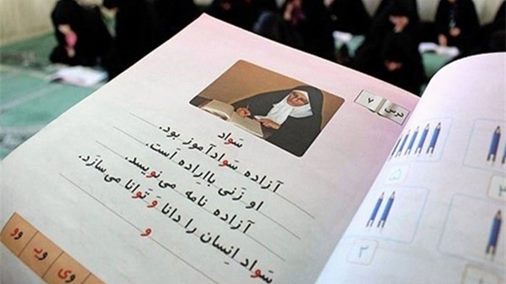 درس ۷
سَواد
آزاده سَوادآموز بود.
او زَنی بااِراده است.
آزاده نامه می‌نِویسد.
سَواد اِنسان را دانا وَ تَوانا می‌سازد.
و
وی ور وو
۵
۲